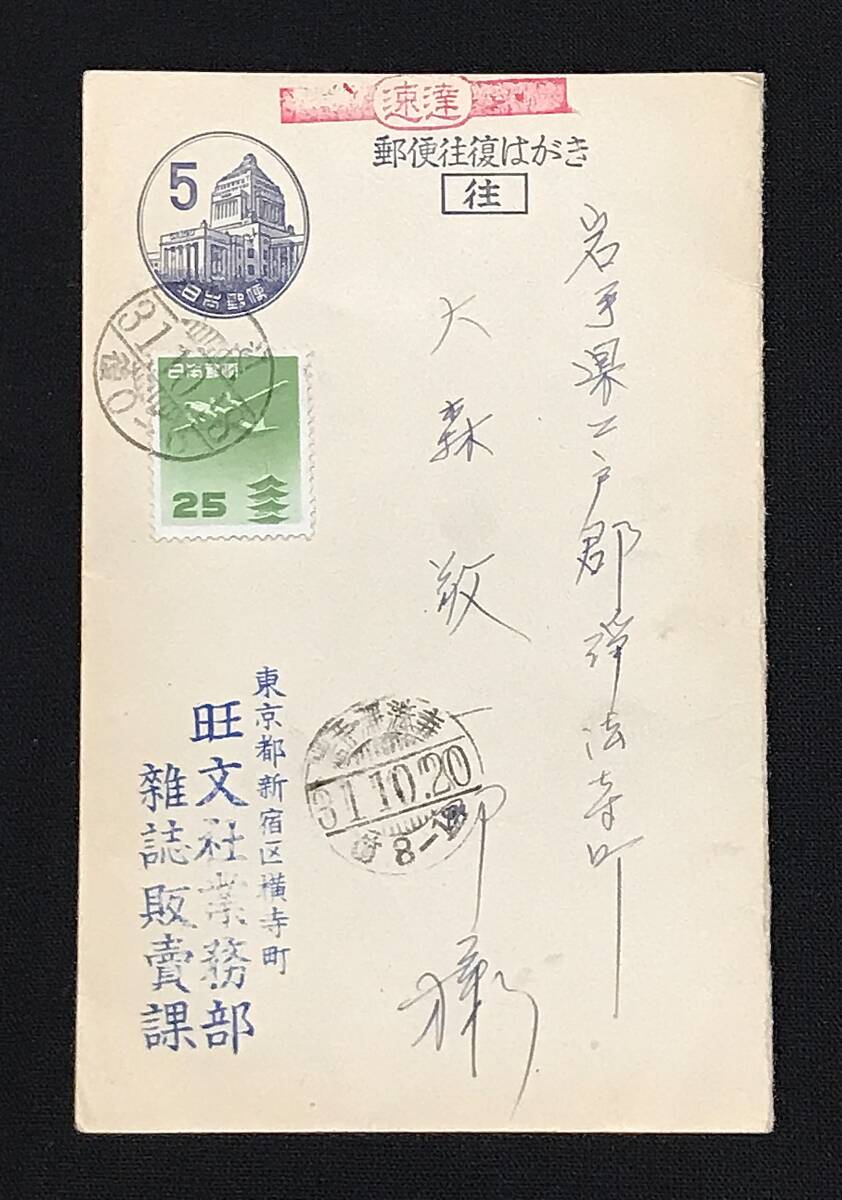 速達
郵便往復はがき
往
5
日本郵便
日本郵便
25
岩手県二戸郡浄法寺町
大森敬一郎様
31.10.20
8-12
東京都新宿区横寺町
旺文社業務部
雑誌販賣課